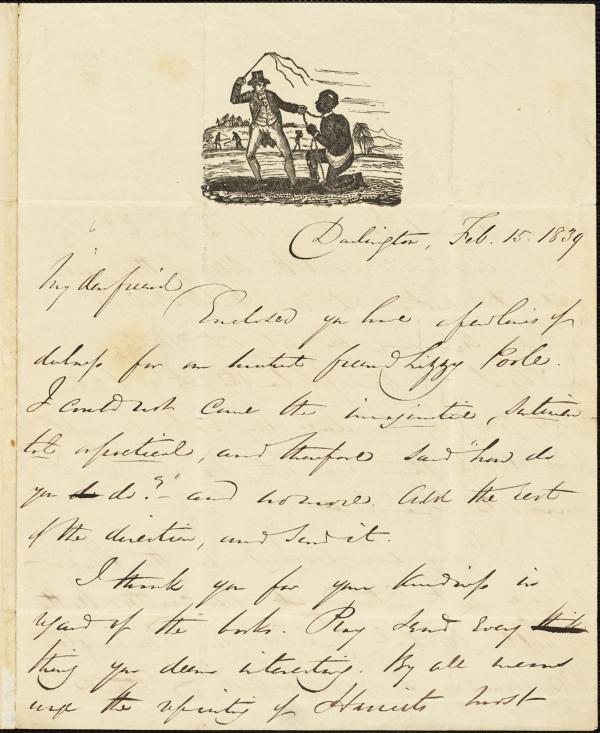 Darlington, Feb. 15. 1839
My dear friend
Enclosed you have a few lines of
dulness for our mutual friend Lizzy Poole.
I could not come the imaginative, sentimen-
tal or poetical, and therefore said "how do
you do?"- and no more. Add the rest
of the direction, and send it.
I thank you for your kindness in
regard of the books. Pray send every
thing you deem interesting. By all means
urge the reprinting of Harriets most